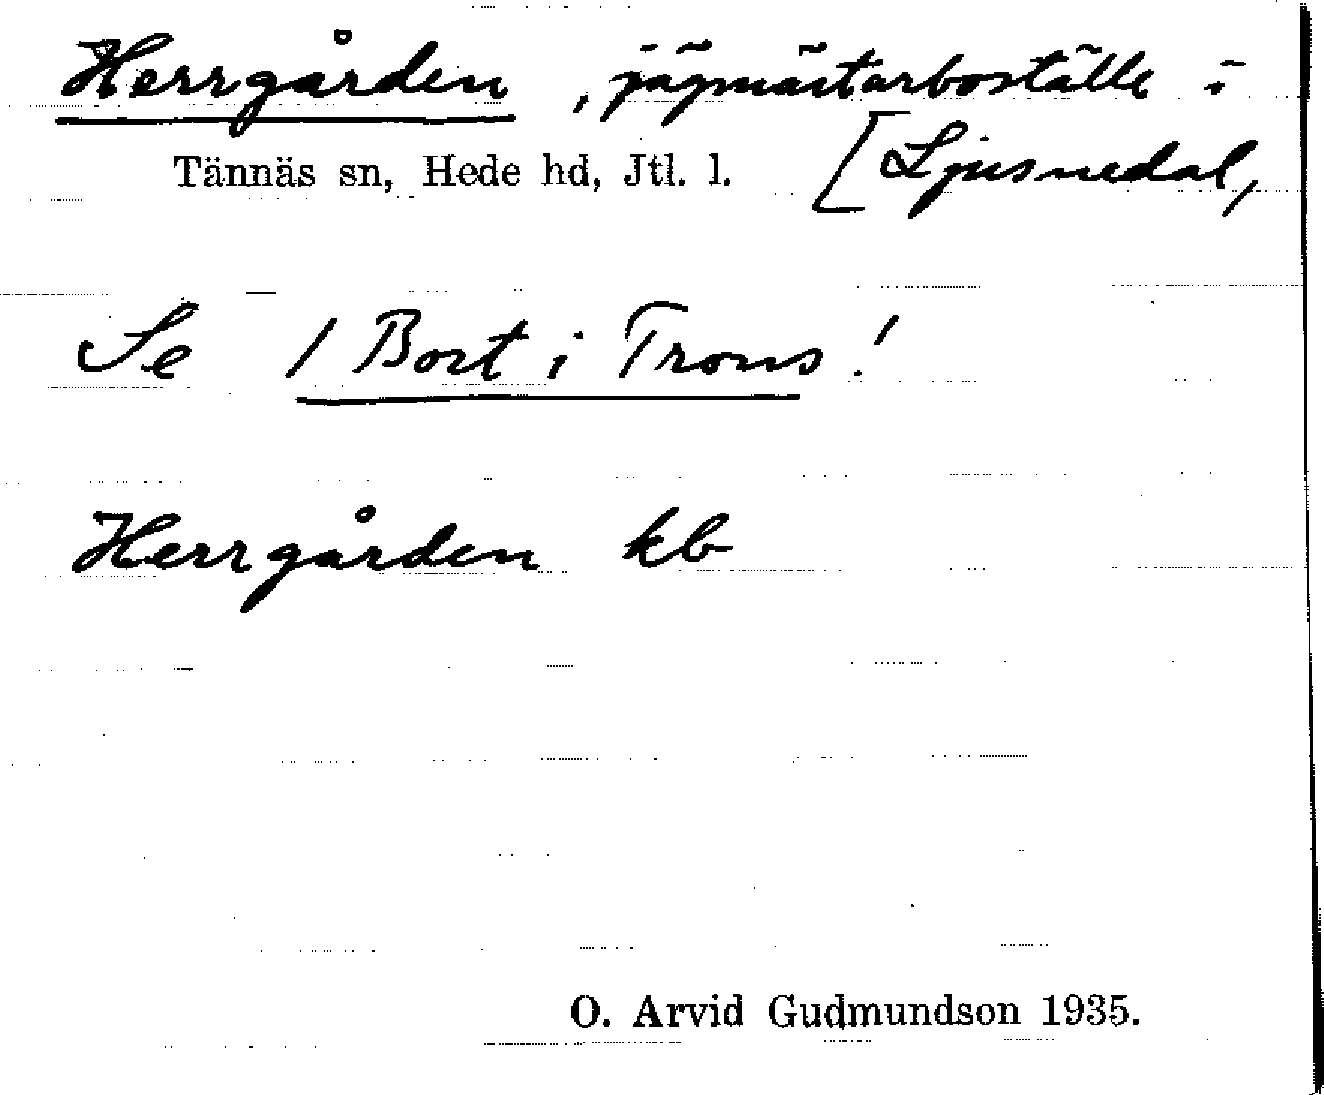 Herrgården, jägmästarboställe i
[Ljusnedal,
Tännäs sn, Hede hd, Jtl. l.
Se 1 Bort i Trons!
Herrgården kb
O. Arvid Gudmundson 1935.